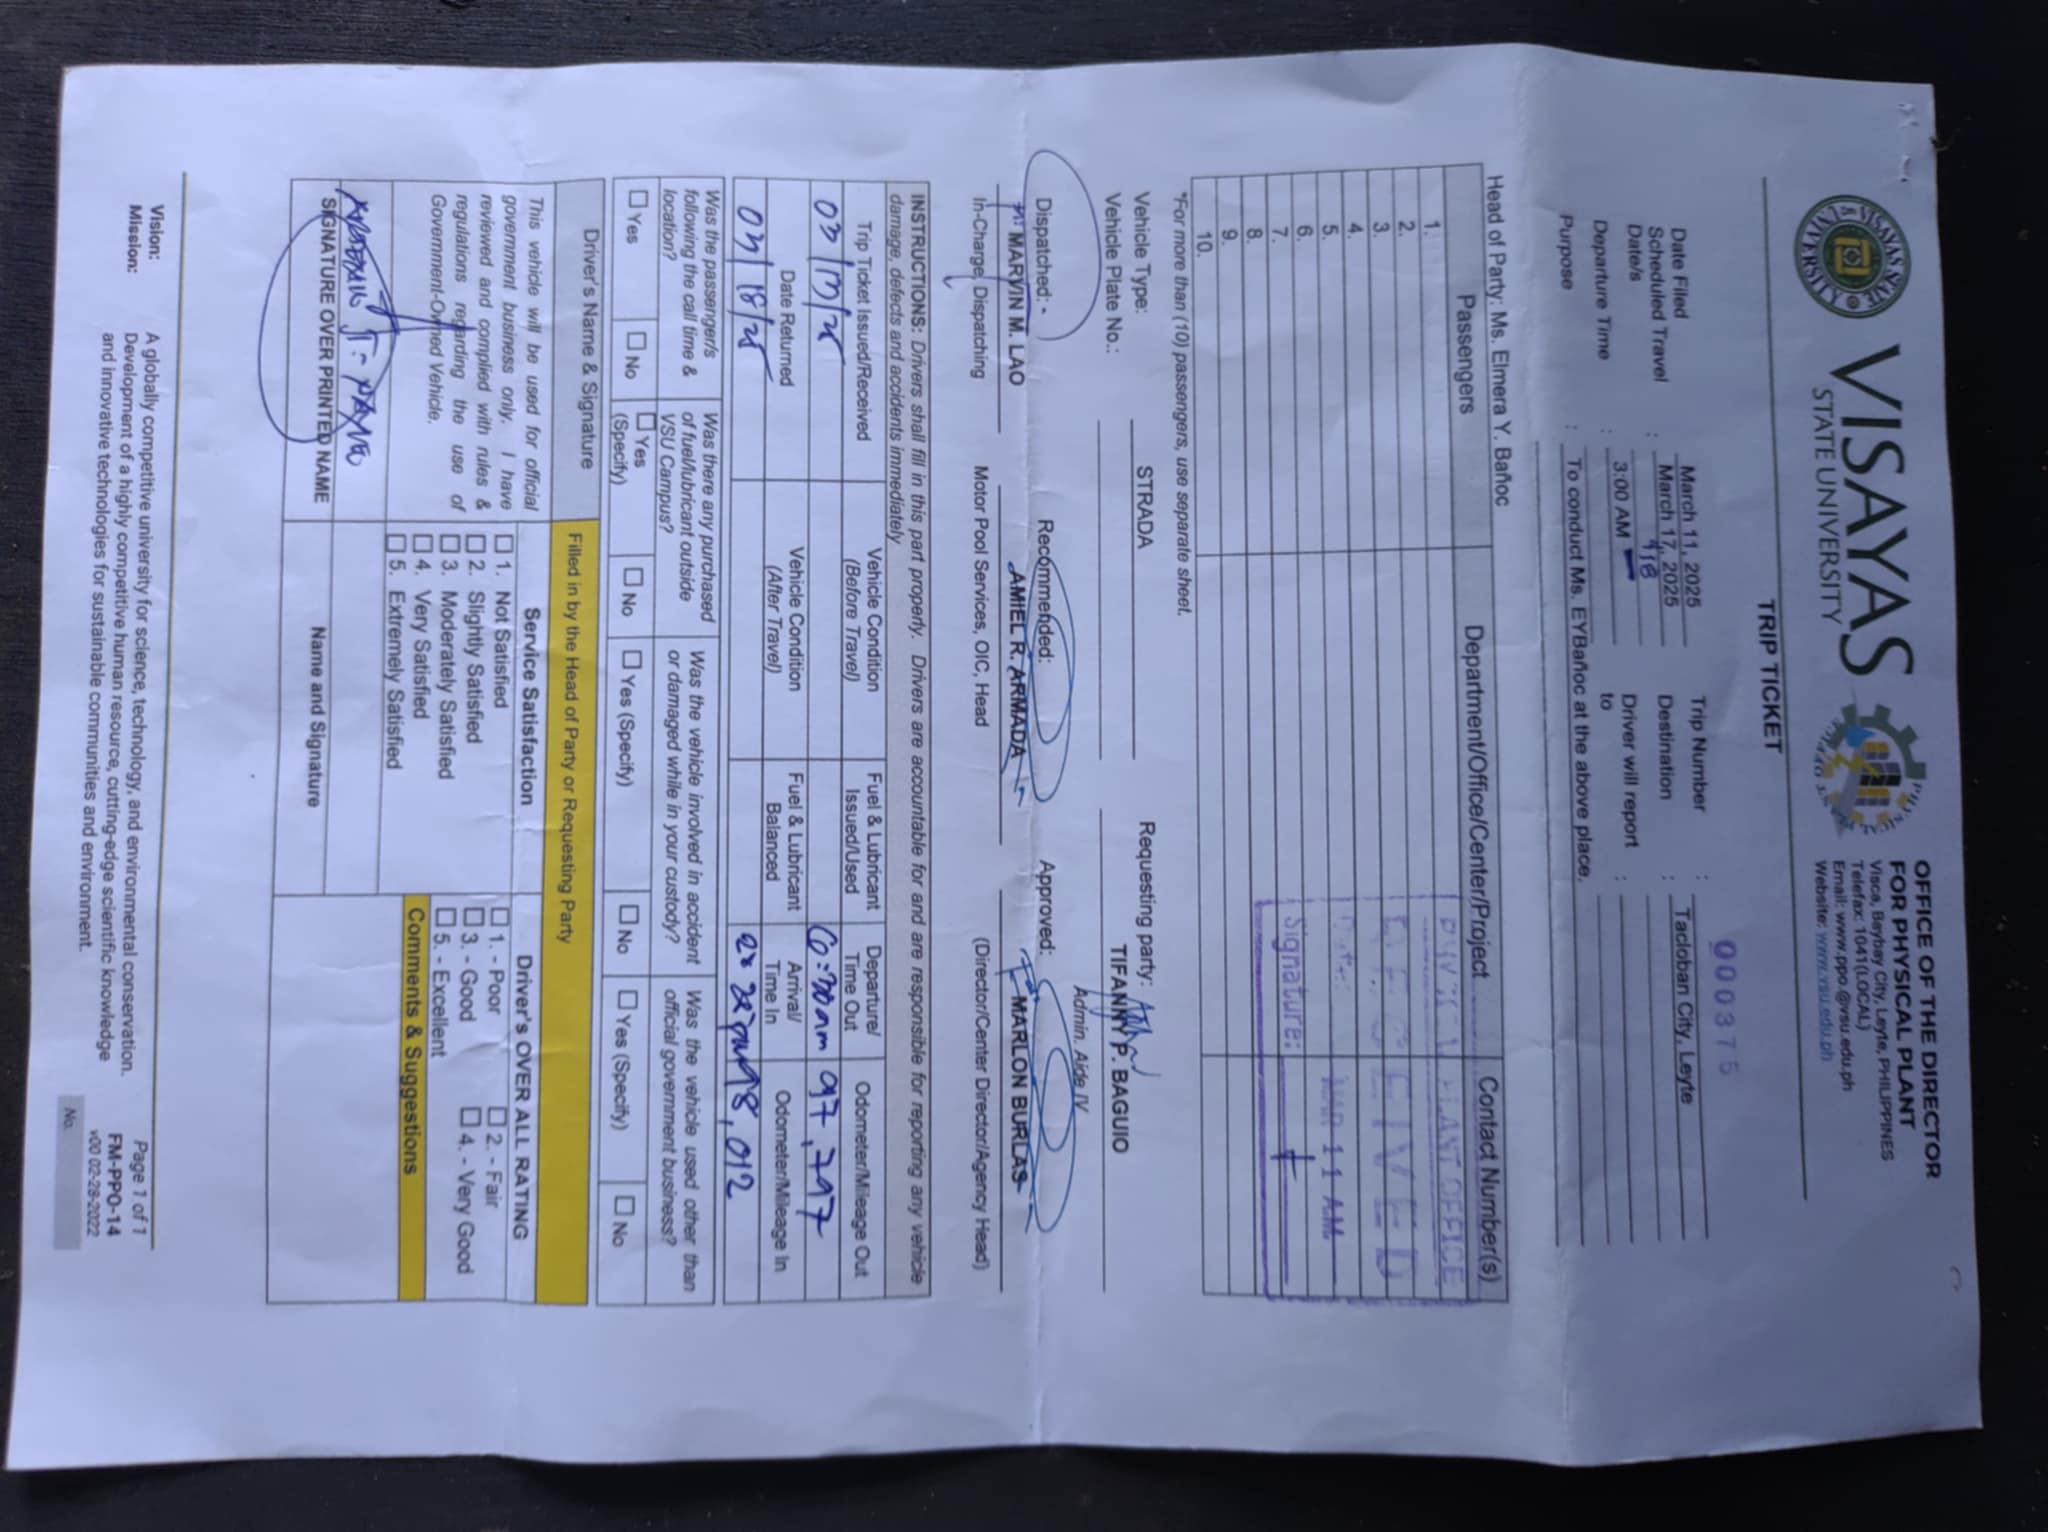 VISAYAS
STATE UNIVERSITY
OFFICE OF THE DIRECTOR
FOR PHYSICAL PLANT
Visca, Baybay City, Leyte, PHILIPPINES
Telefax: 1041(LOCAL)
Email: www.ppo.@vsu.edu.ph
Website: www.vsu.edu.ph
TRIP TICKET
000375
Date Filed : March 11, 2025
Scheduled Travel Date/s : March 17, 2025
&18
Departure Time : 3:00 AM
Purpose : To conduct Ms. EYBañoc at the above place.
Trip Number :
Destination : Tacloban City, Leyte
Driver will report to :
Head of Party: Ms. Elmera Y. Bañoc
Passengers Department/Office/Center/Project Contact Number(s)
1.
2.
3.
4.
5.
6.
7.
8.
9.
10.
PHYSICAL PLANT OFFICE
RECEIVED
Date: MAR 11 AM
Signature:
*For more than (10) passengers, use separate sheet.
Vehicle Type: STRADA
Vehicle Plate No.:
Requesting party:
TIFANNY P. BAGUIO
Admin. Aide IV
Dispatched:
MARVIN M. LAO
In-Charge, Dispatching
Recommended:
AMIEL R. ARMADA
Motor Pool Services, OIC, Head
Approved:
MARLON BURLAS
(Director/Center Director/Agency Head)
INSTRUCTIONS: Drivers shall fill in this part properly. Drivers are accountable for and are responsible for reporting any vehicle
damage, defects and accidents immediately
Trip Ticket Issued/Received Vehicle Condition (Before Travel) Fuel & Lubricant Issued/Used Departure/ Time Out Odometer/Mileage Out
97,797
Date Returned Vehicle Condition (After Travel) Fuel & Lubricant Balanced Arrival/ Time In Odometer/Mileage In
98,012
Was the passenger/s following the call time & location?
Was there any purchased of fuel/lubricant outside VSU Campus?
Was the vehicle involved in accident or damaged while in your custody?
Was the vehicle used other than official government business?
Yes No
Yes (Specify) No
Yes (Specify) No
Yes (Specify) No
Driver's Name & Signature
Filled in by the Head of Party or Requesting Party
This vehicle will be used for official
government business only. I have
reviewed and complied with rules &
regulations regarding the use of
Government-Owned Vehicle.
SIGNATURE OVER PRINTED NAME
Service Satisfaction
1. Not Satisfied
2. Slightly Satisfied
3. Moderately Satisfied
4. Very Satisfied
5. Extremely Satisfied
Name and Signature
Driver's OVER ALL RATING
1. - Poor 2. - Fair
3. - Good 4. - Very Good
5. - Excellent
Comments & Suggestions
Vision: A globally competitive university for science, technology, and environmental conservation.
Mission: Development of a highly competitive human resource, cutting-edge scientific knowledge
and innovative technologies for sustainable communities and environment.
Page 1 of 1
FM-PPO-14
v00 02-28-2022
No.